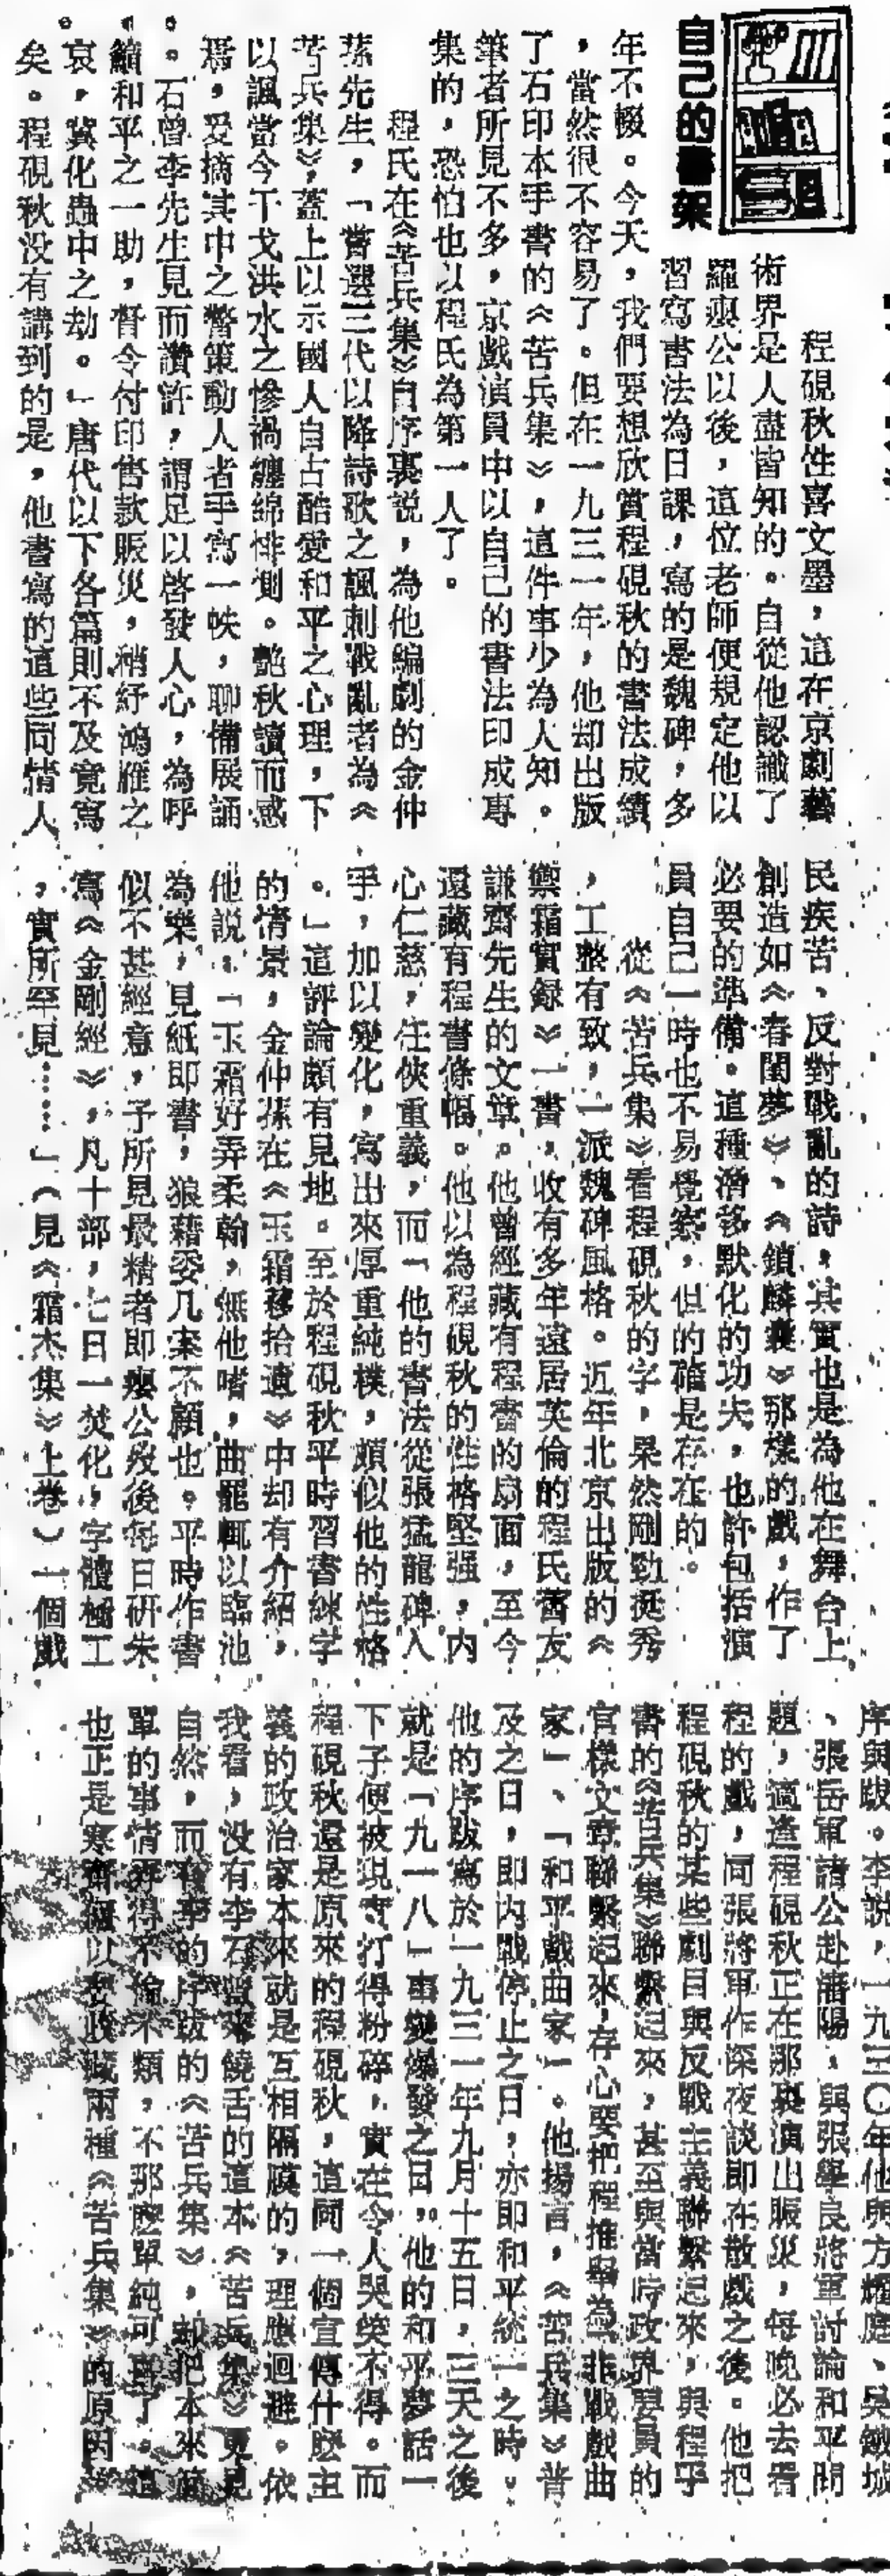 自己的書架
程硯秋性喜文墨，這在京劇藝
術界是人盡皆知的。自從他認識了
羅癭公以後，這位老師便規定他以
習寫書法為日課，寫的是魏碑，多
年不輟。今天，我們要想欣賞程硯秋的書法成績
，當然很不容易了。但在一九三一年，他却出版
了石印本手書的《苦兵集》，這件事少為人知。
筆者所見不多，京戲演員中以自己的書法印成專
集的，恐怕也以程氏為第一人了。
程氏在《苦兵集》自序裏説，為他編劇的金仲
蓀先生，「嘗選三代以降詩歌之諷刺戰亂者為《
苦兵集》，蓋上以示國人自古酷愛和平之心理，下
以諷當今干戈洪水之慘禍纏綿悱惻。艷秋讀而感
焉，爰摘其中之警策動人者手寫一帙，聊備展誦
。石曾李先生見而讚許，謂足以啓發人心，為呼
籲和平之一助，督令付印售款賑災，稍紓鴻雁之
哀，冀化蟲中之劫。」唐代以下各篇則不及竟寫
矣。程硯秋没有講到的是，他書寫的這些同情人
民疾苦、反對戰亂的詩，其實也是為他在舞台上
創造如《春閨夢》、《鎖麟囊》那樣的戲，作了
必要的準備。這種潛移默化的功夫，也許包括演
員自己一時也不易覺察，但的確是存在的。
從《苦兵集》看程硯秋的字，果然剛勁挺秀
，工整有致，一派魏碑風格。近年北京出版的《
禦霜實録》一書，收有多年遠居英倫的程氏舊友
謙齋先生的文章。他曾經藏有程書的扇面，至今
還藏有程書條幅。他以為程硯秋的性格堅强，内
心仁慈，任俠重義，而「他的書法從張猛龍碑入
手，加以變化，寫出來厚重純樸，頗似他的性格
。」這評論頗有見地。至於程硯秋平時習書練字
的情景，金仲蓀在《玉霜簃拾遺》中却有介紹，
他説：「玉霜好弄柔翰，無他嗜，曲罷輒以臨池
為樂，見紙即書，狼藉委几案不顧也。平時作書
似不甚經意，予所見最精者即癭公歿後每日研朱
寫《金剛經》，凡十部，七日一焚化，字體極工
，實所罕見……」（見《霜杰集》上卷）一個戲
序與跋。李説，一九三〇年他與方耀庭、吳鐵城
、張岳軍諸公赴瀋陽，與張學良將軍討論和平問
題，適逢程硯秋正在那裏演出賑災，每晚必去看
程的戲，同張將軍作深夜談即在散戲之後。他把
程硯秋的某些劇目與反戰主義聯繫起來，與程手
書的《苦兵集》聯繫起來，甚至與當時政界要員的
官樣文章聯繫起來，存心要把程推舉為「非戰戲曲
家」、「和平戲曲家」。他揚言，《苦兵集》普
及之日，即内戰停止之日，亦即和平統一之時。
他的序跋寫於一九三一年九月十五日，三天之後
就是「九一八」事變爆發之日，他的和平夢話一
下子便被現實打得粉碎，實在令人哭笑不得。而
程硯秋還是原來的程硯秋，這同一個宣傳什麽主
義的政治家本來就是互相隔膜的，理應迴避。依
我看，没有李石曾來饒舌的這本《苦兵集》更見
自然，而有李的序跋的《苦兵集》，却把本來簡
單的事情弄得不倫不類，不那麽單純可喜了。這
也正是寒齋得以收藏兩種《苦兵集》的原因